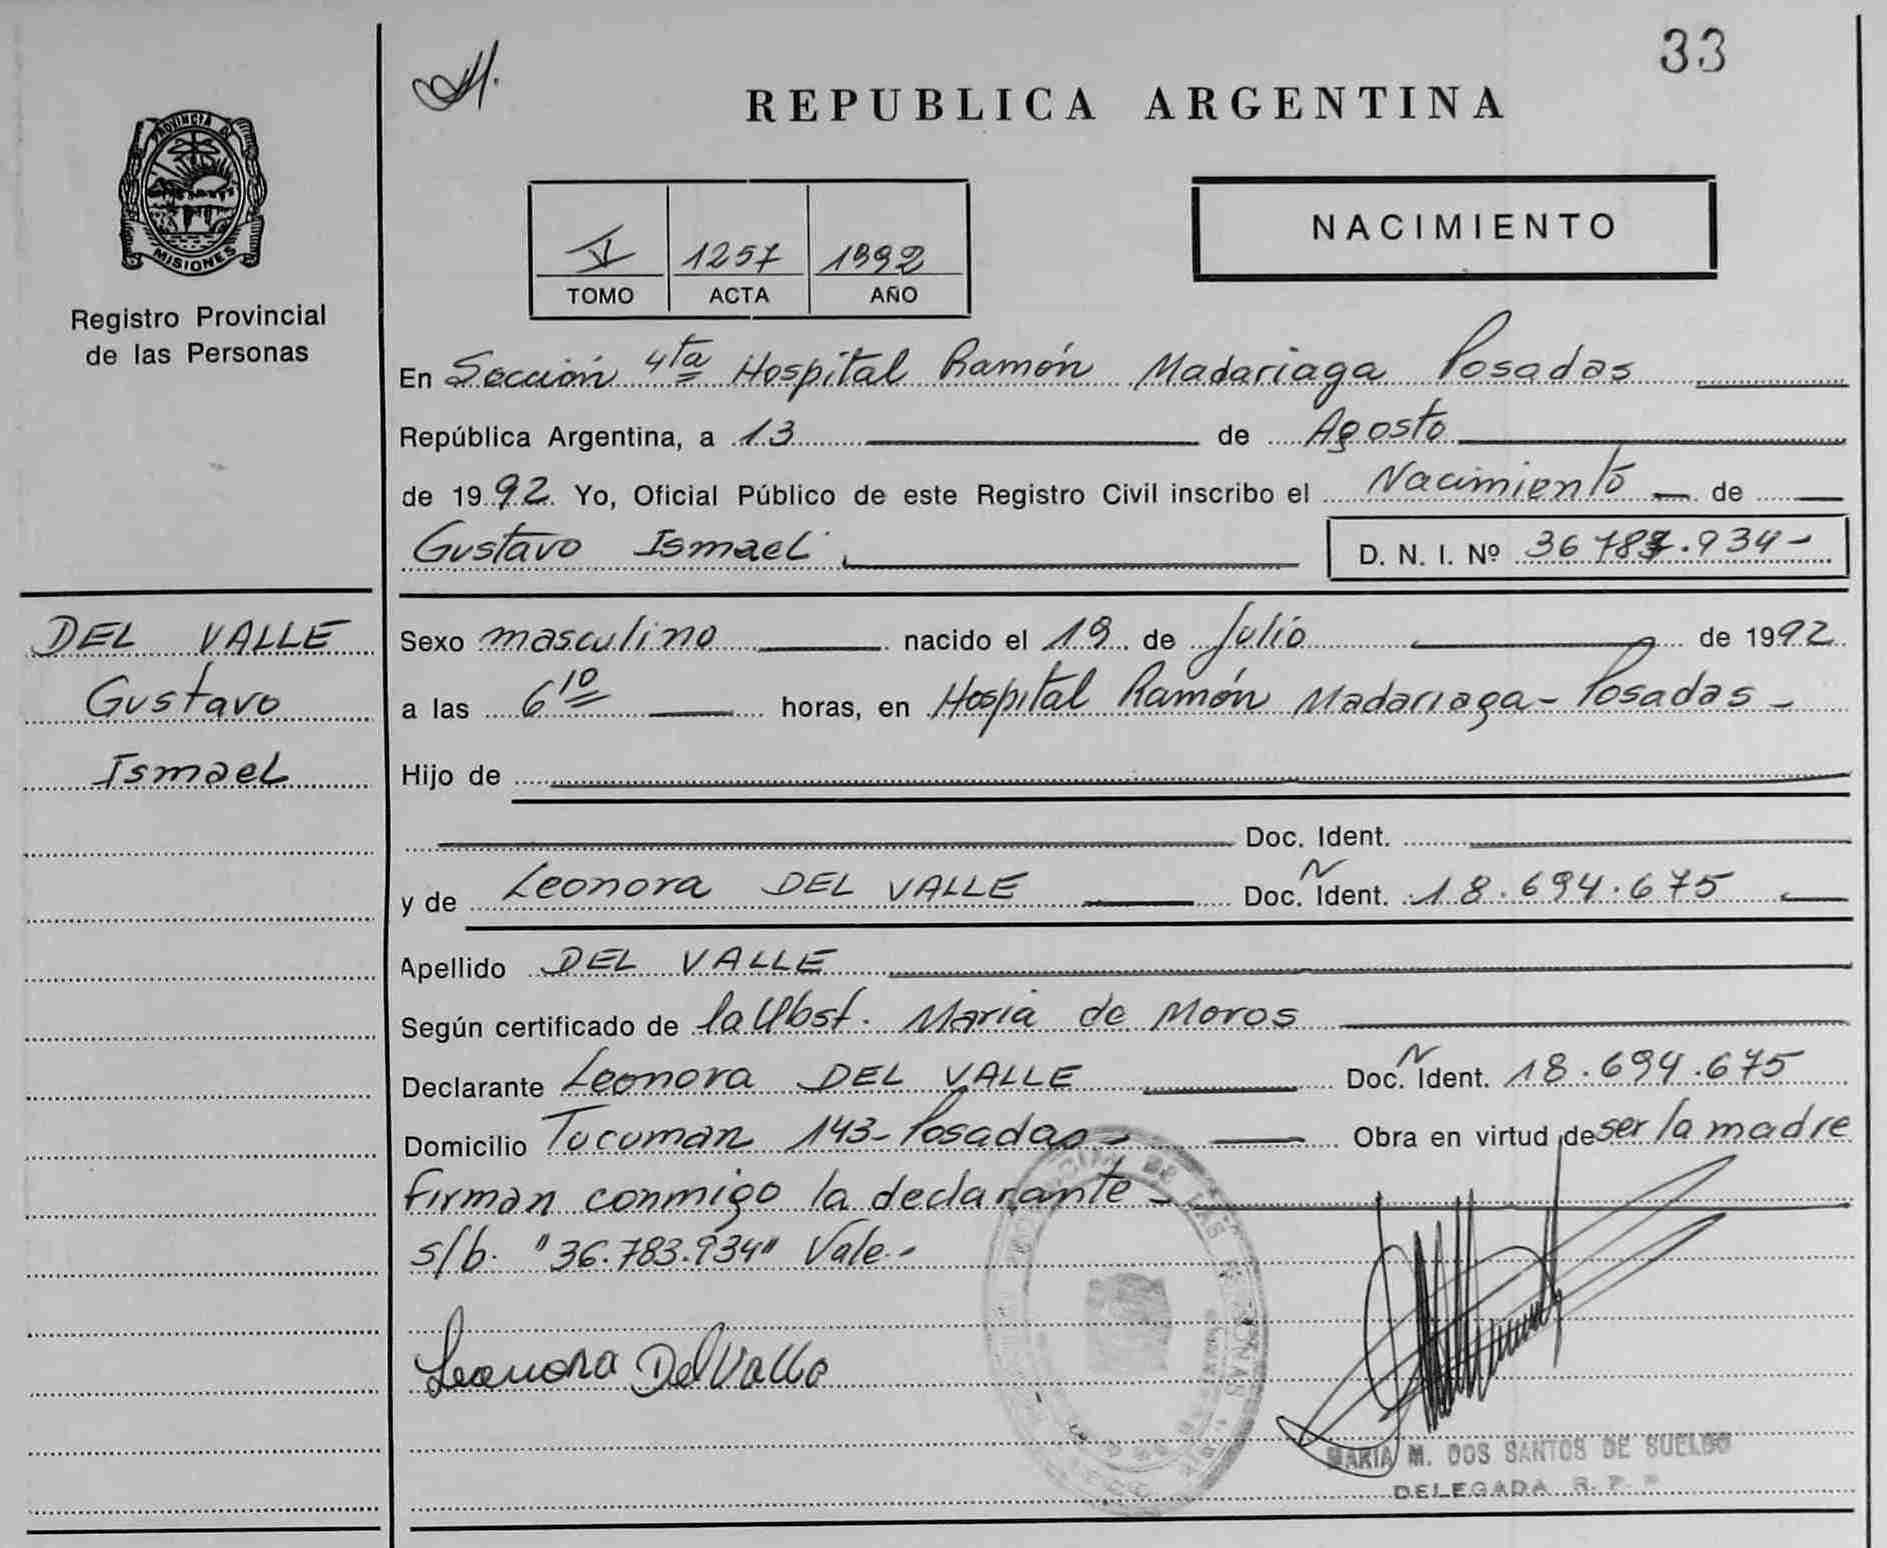 33
REPUBLICA ARGENTINA
PROVINCIA DE
MISIONES
Registro Provincial
de las Personas
NACIMIENTO
V 1257 1992
TOMO ACTA AÑO
En Sección 4ta Hospital Ramón Madariaga Posadas
República Argentina, a 13 de Agosto
de 1992 Yo, Oficial Público de este Registro Civil inscribo el Nacimiento de
Gustavo Ismael D. N. I. Nº 36783.934-
DEL VALLE
Gustavo
Ismael
Sexo masculino nacido el 19 de Julio de 1992
a las 6 10 horas, en Hospital Ramón Madariaga - Posadas -
Hijo de
Doc. Ident.
y de Leonora DEL VALLE Doc. N Ident. 18.694.675
Apellido DEL VALLE
Según certificado de la Obst. María de Moros
Declarante Leonora DEL VALLE Doc. N Ident. 18.694.675
Domicilio Tucuman 143- Posadas - Obra en virtud de ser la madre
Firman conmigo la declarante -
s/b. "36.783.934" Vale.-
Leonora Del Valle
MARIA M. DOS SANTOS DE SUELDO
DELEGADA R. P. P.